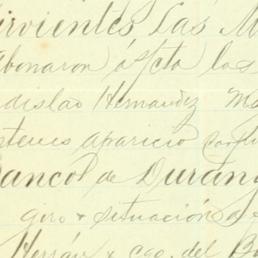 irvientes Las M
abonaron á cta los
dislao Hernandez Ma
stenes Aparicio
Banco de Durang
giro x situación de
Hernán x cgo. del B